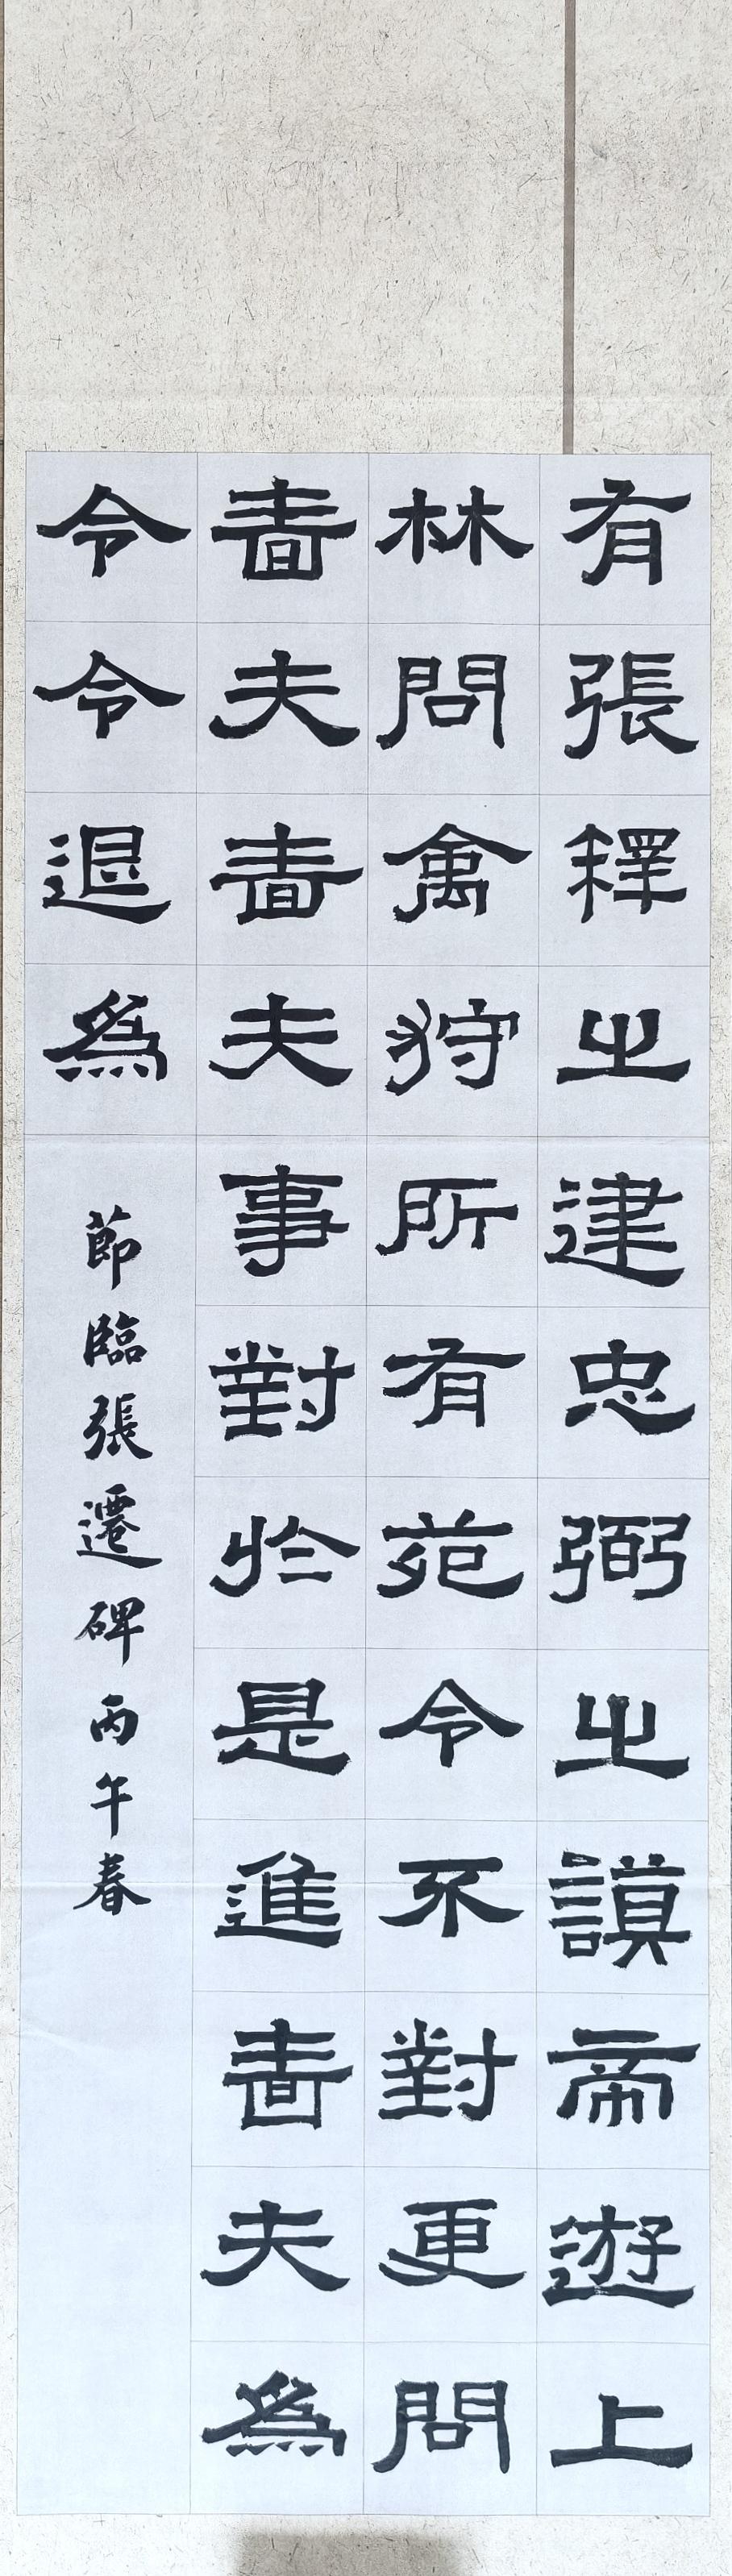 有張釋之建忠弼之謨帝遊上
林問禽狩所有苑令不對更問
啬夫啬夫事對於是進啬夫為
令令退為
節臨張遷碑丙午春